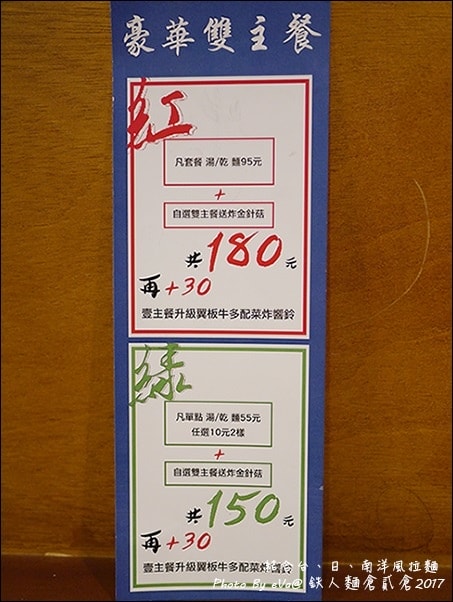 豪華雙主餐
紅
凡套餐 湯/乾 麵95元
+
自選雙主餐送炸金針菇
共180元
再+30
壹主餐升級翼板牛多配菜炸響鈴
綠
凡單點 湯/乾 麵55元
任選10元2樣
+
自選雙主餐送炸金針菇
共150元
再+30
壹主餐升級翼板牛多配菜炸響鈴
結合台、日、南洋風拉麵
Photo By eVa@ 鉄人麵倉貳倉2017